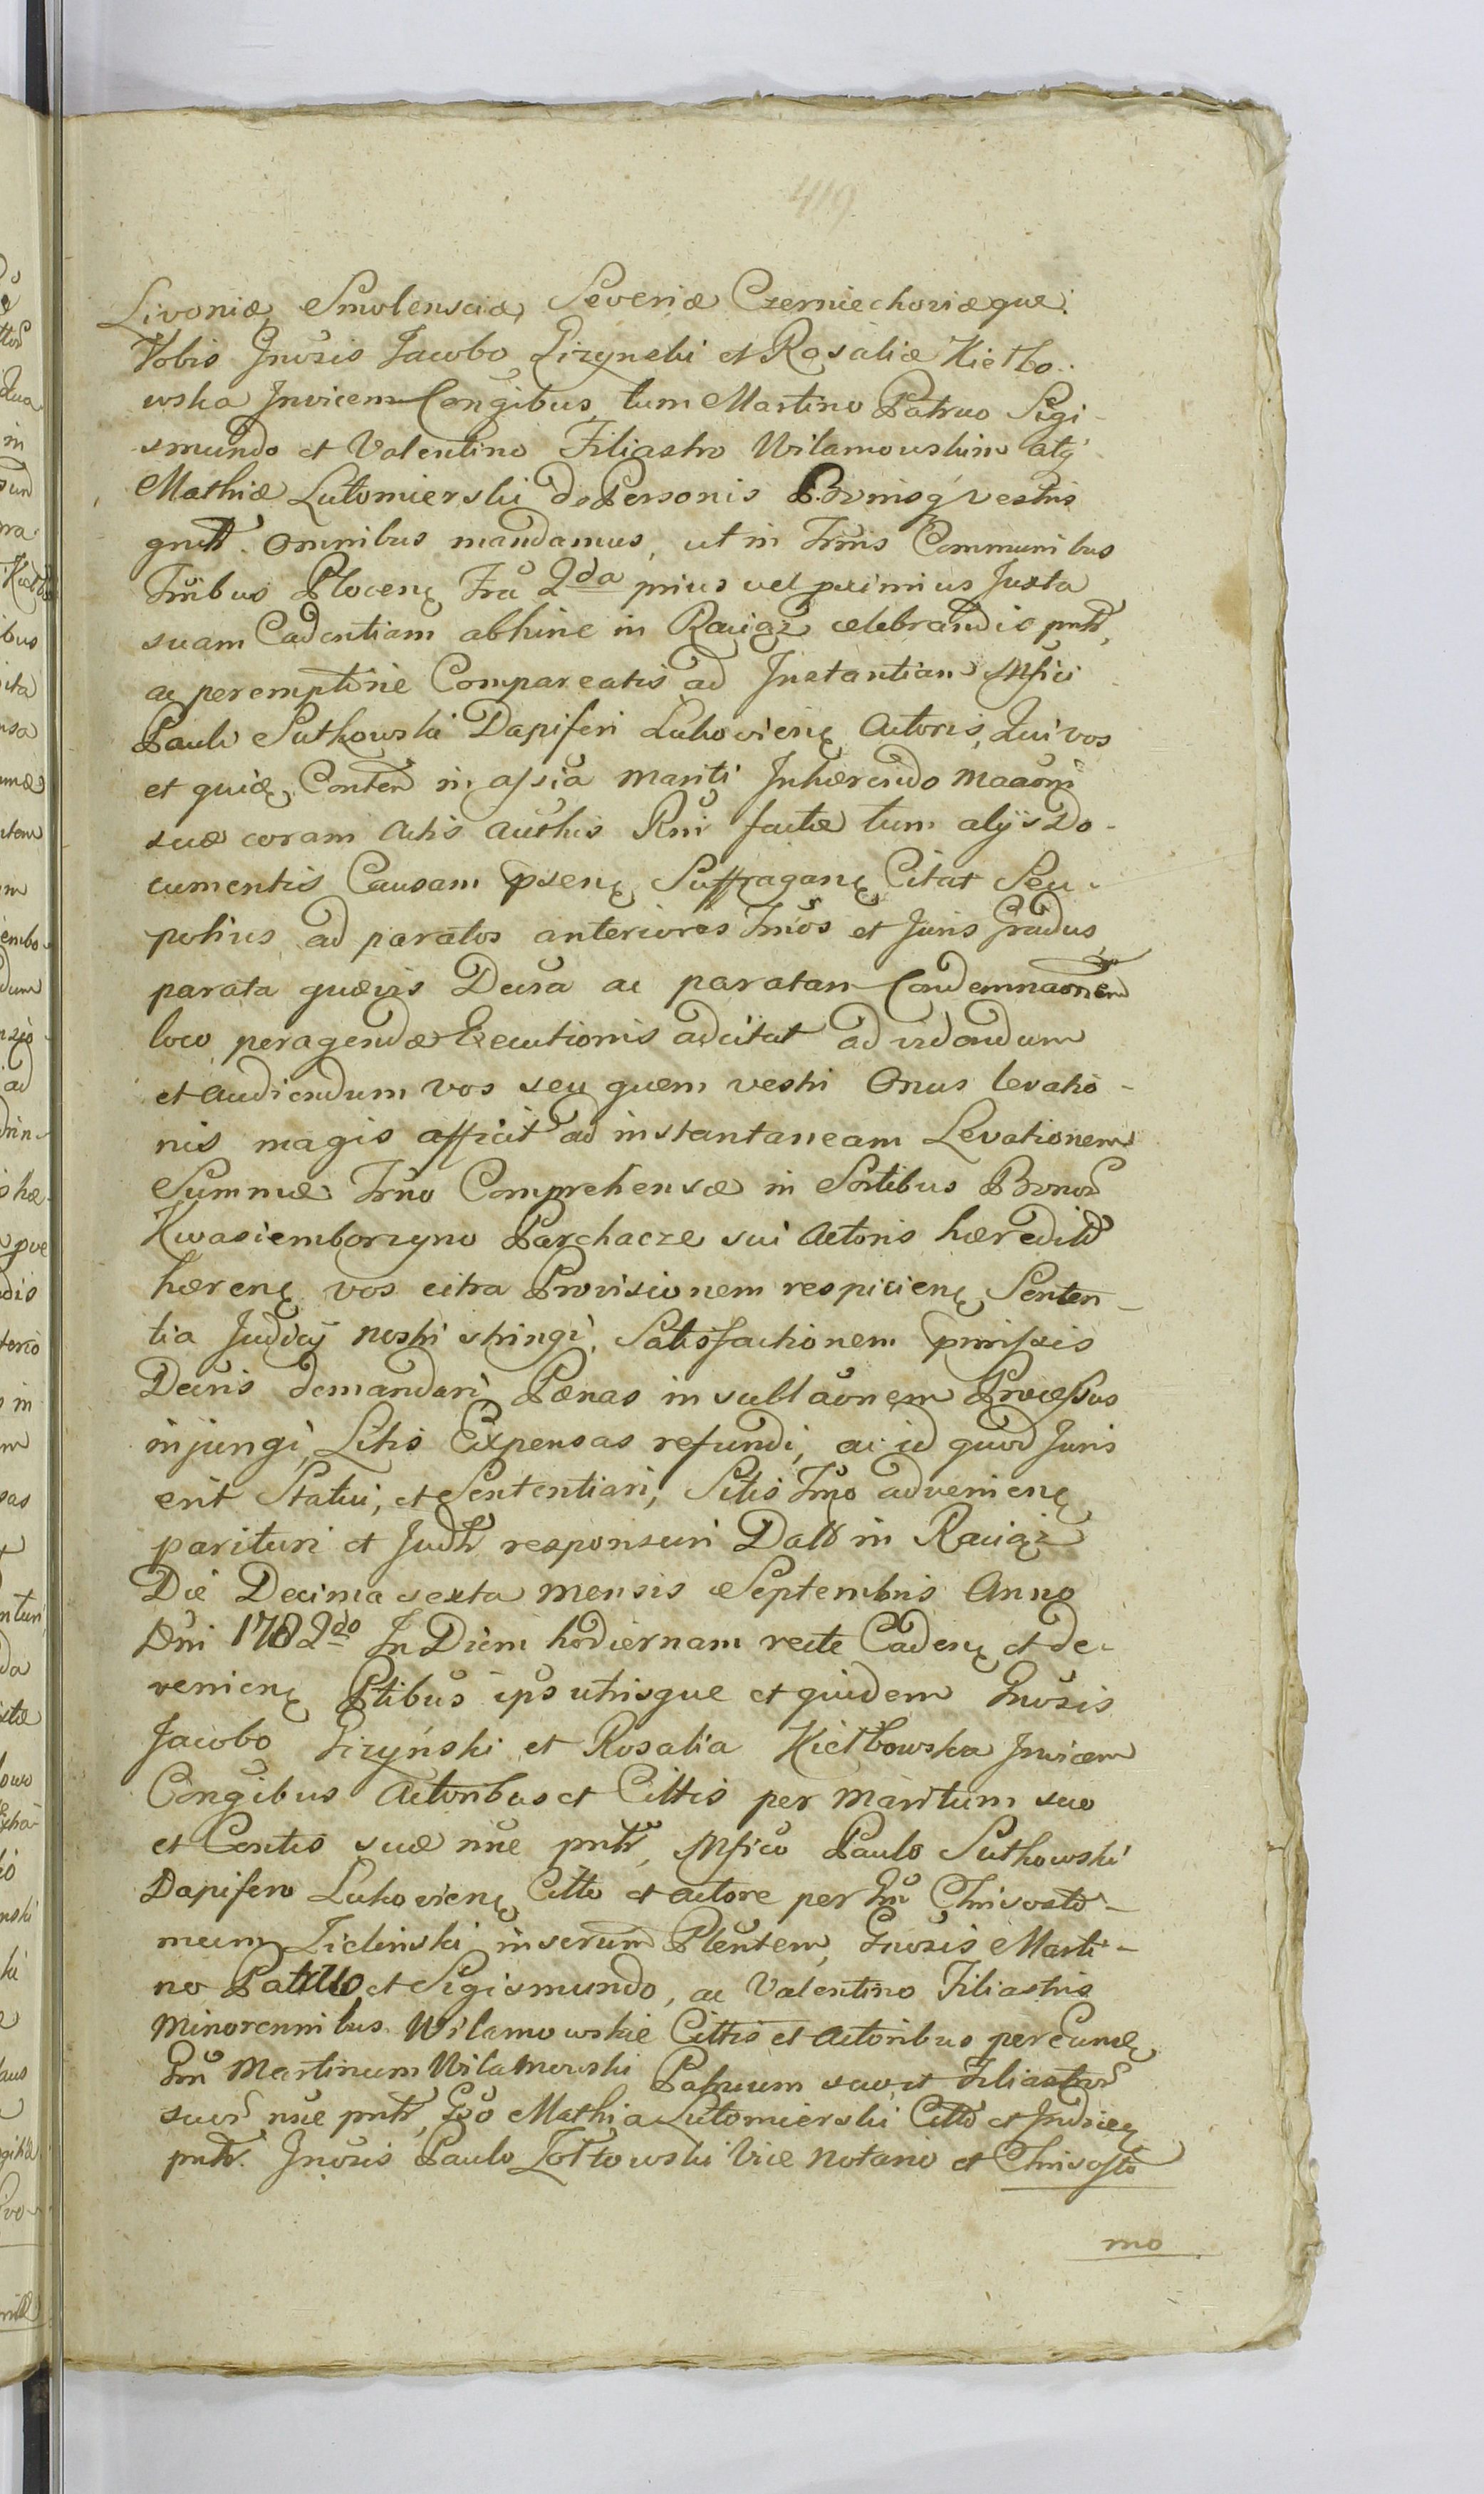 419
Livoniæ, Smolensciæ, Severiæ Czerniechoviæque.
Vobis Gnosis Jacobo Pizynski et Rosaliæ Kiełbo-
wska Invicem Congibus, tum Martino Patruo Sigi-
smundo et Valentino Filiastro Wilamowskim atq
Mathiæ Lutomierski de Personis Bonisq vestris
gnlt. omnibus mandamus, ut in Trmis Communibus
Trnibus Plocen Fra 2da prius vel proximius Juxta
suam Cadentiam abhinc in Raciąż celebrandis pntr,
ac peremptorie Compareatis ad Instantiam Mfici
Pauli Sutkowski Dapiferi Lukovien Actoris, Qui vos
et quidæ Conten in assia mariti Inhærendo Maaoni
suæ coram Actis Authis Rni factæ tum alijs Do-
cumentis Causam psen Suffragan Citat Seu
potius ad paratos anteriores Trnos et Juris Gradus
parata quævis Decra ac paratam Condemnaonem
loco peragendæ Executionis adcitat ad videndum
et audiendum vos seu quem vestri Onus levatio-
nis magis afficit ad instantaneam Levationem
Summæ Trno Comprehensæ in Sortibus Bonor
Kwasiemborzyno Parchacze sui Actoris hæredit
hæren vos citra Provisionem respicien Senten-
tia Judicij nostri stringi, Satisfactionem pmissis
Decris demandari, Pænas in sublaonem Processus
injungi, Litis Expensas refundi, ac id quod Juris
erit Statui, et Sententiari, Sitis Trno advenien
parituri et Judtr responsuri Datt in Raciąż
Die Decima sexta mensis Septembris Anno
Dni 1782do In Diem hodiernam recte Caden et de-
venien Ptibus ips utrisque et quidem Gnosis
Jacobo Pizyński et Rosalia Kiełbowska Invicem
Congibus Actoribus et Cittis per Maritum suo
et Contis suæ nne pntr, Mfico Paulo Sutkowski
Dapifero Lukovien Citto et Actore per Gm Chrisosto-
mum Zielinski inserum Plentem, Gnosis Marti-
no Patruo et Sigismundo, ac Valentino Filiastris
Minorennibus Wilamowskie Cittis et Actoribus per Eumd
Gm Martinum Wilamowski Patruum suo et Filiastror
suor nne pntr, Gso Mathia Lutomierski Citto et Judicy
pntr. Gnosis Paulo Żołtowski Vice Notario et Chrisosto
mo